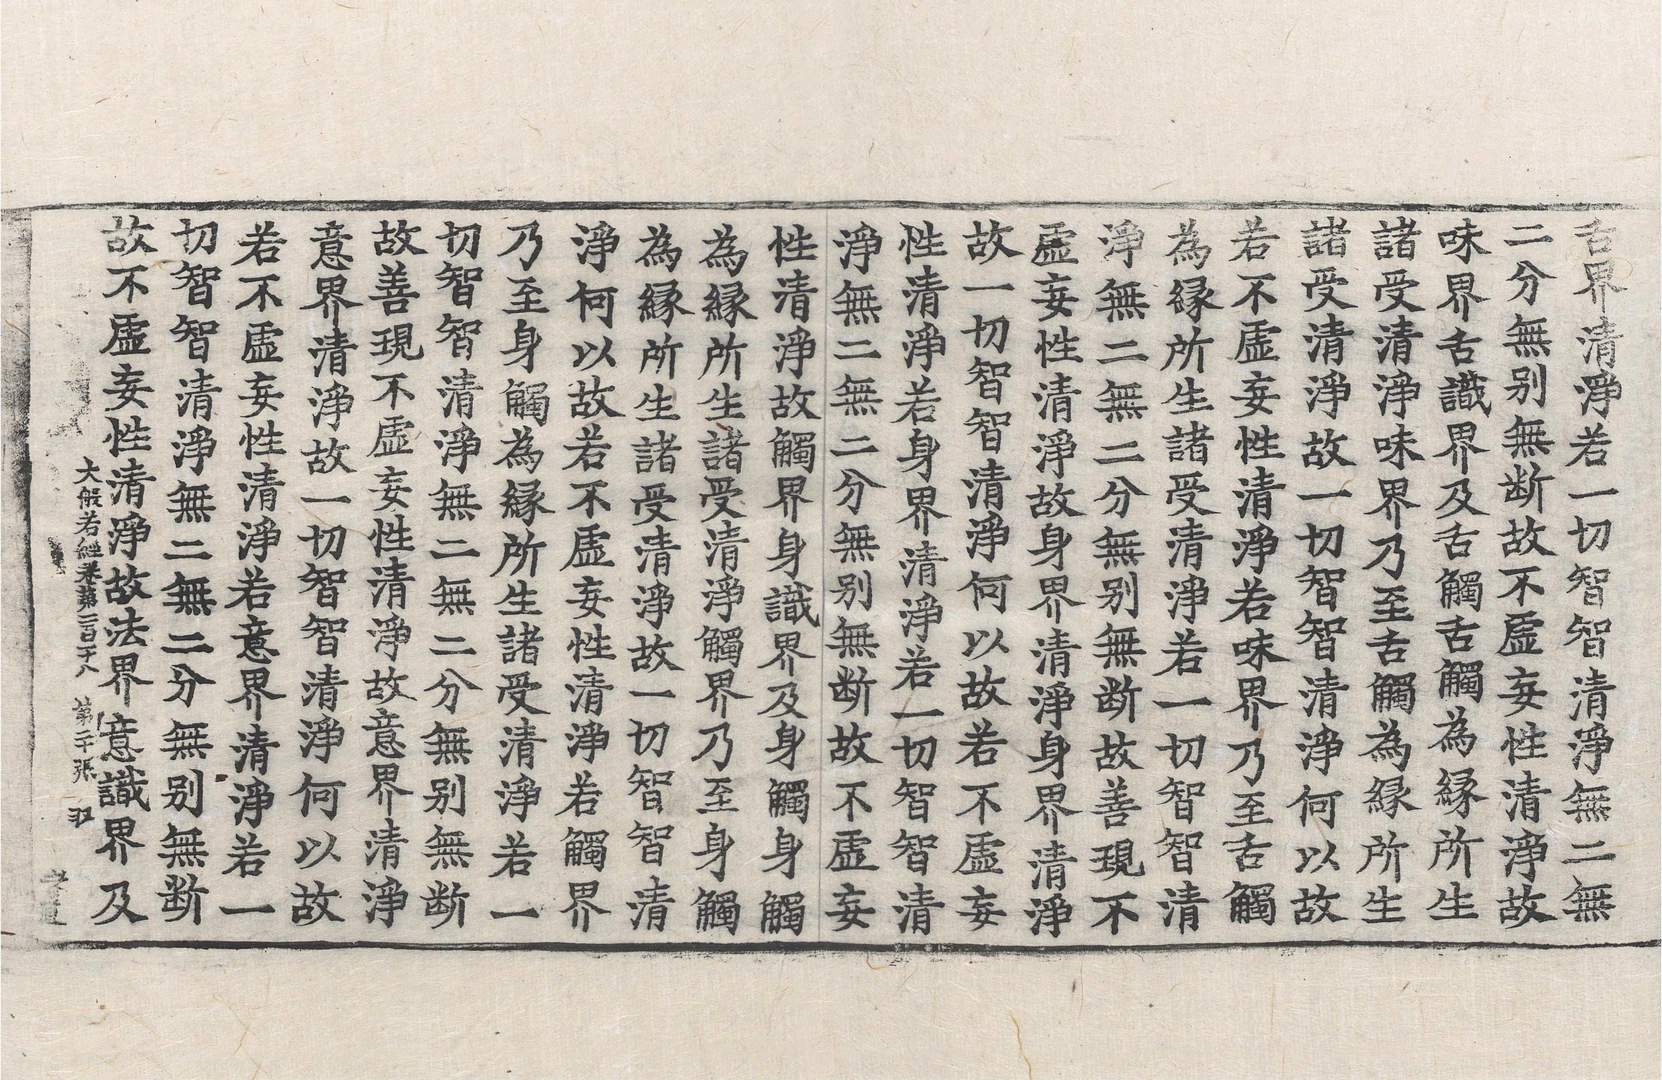 舌界清淨若一切智智清淨無二無
二分無别無断故不虛妄性清淨故
味界舌識界及舌觸舌觸為緣所生
諸受清淨味界乃至舌觸為緣所生
諸受清淨故一切智智清淨何以故
若不虛妄性清淨若味界乃至舌觸
為緣所生諸受清淨若一切智智清
淨無二無二分無别無断故善現不
虛妄性清淨故身界清淨身界清淨
故一切智智清淨何以故若不虛妄
性清淨若身界清淨若一切智智清
淨無二無二分無别無断故不虛妄
性清淨故觸界身識界及身觸身觸
為緣所生諸受清淨觸界乃至身觸
為緣所生諸受清淨故一切智智清
淨何以故若不虛妄性清淨若觸界
乃至身觸為緣所生諸受清淨若一
切智智清淨無二無二分無别無断
故善現不虛妄性清淨故意界清淨
意界清淨故一切智智清淨何以故
若不虛妄性清淨若意界清淨若一
切智智清淨無二無二分無别無断
故不虛妄性清淨故法界意識界及
大般若經卷第 第二十張